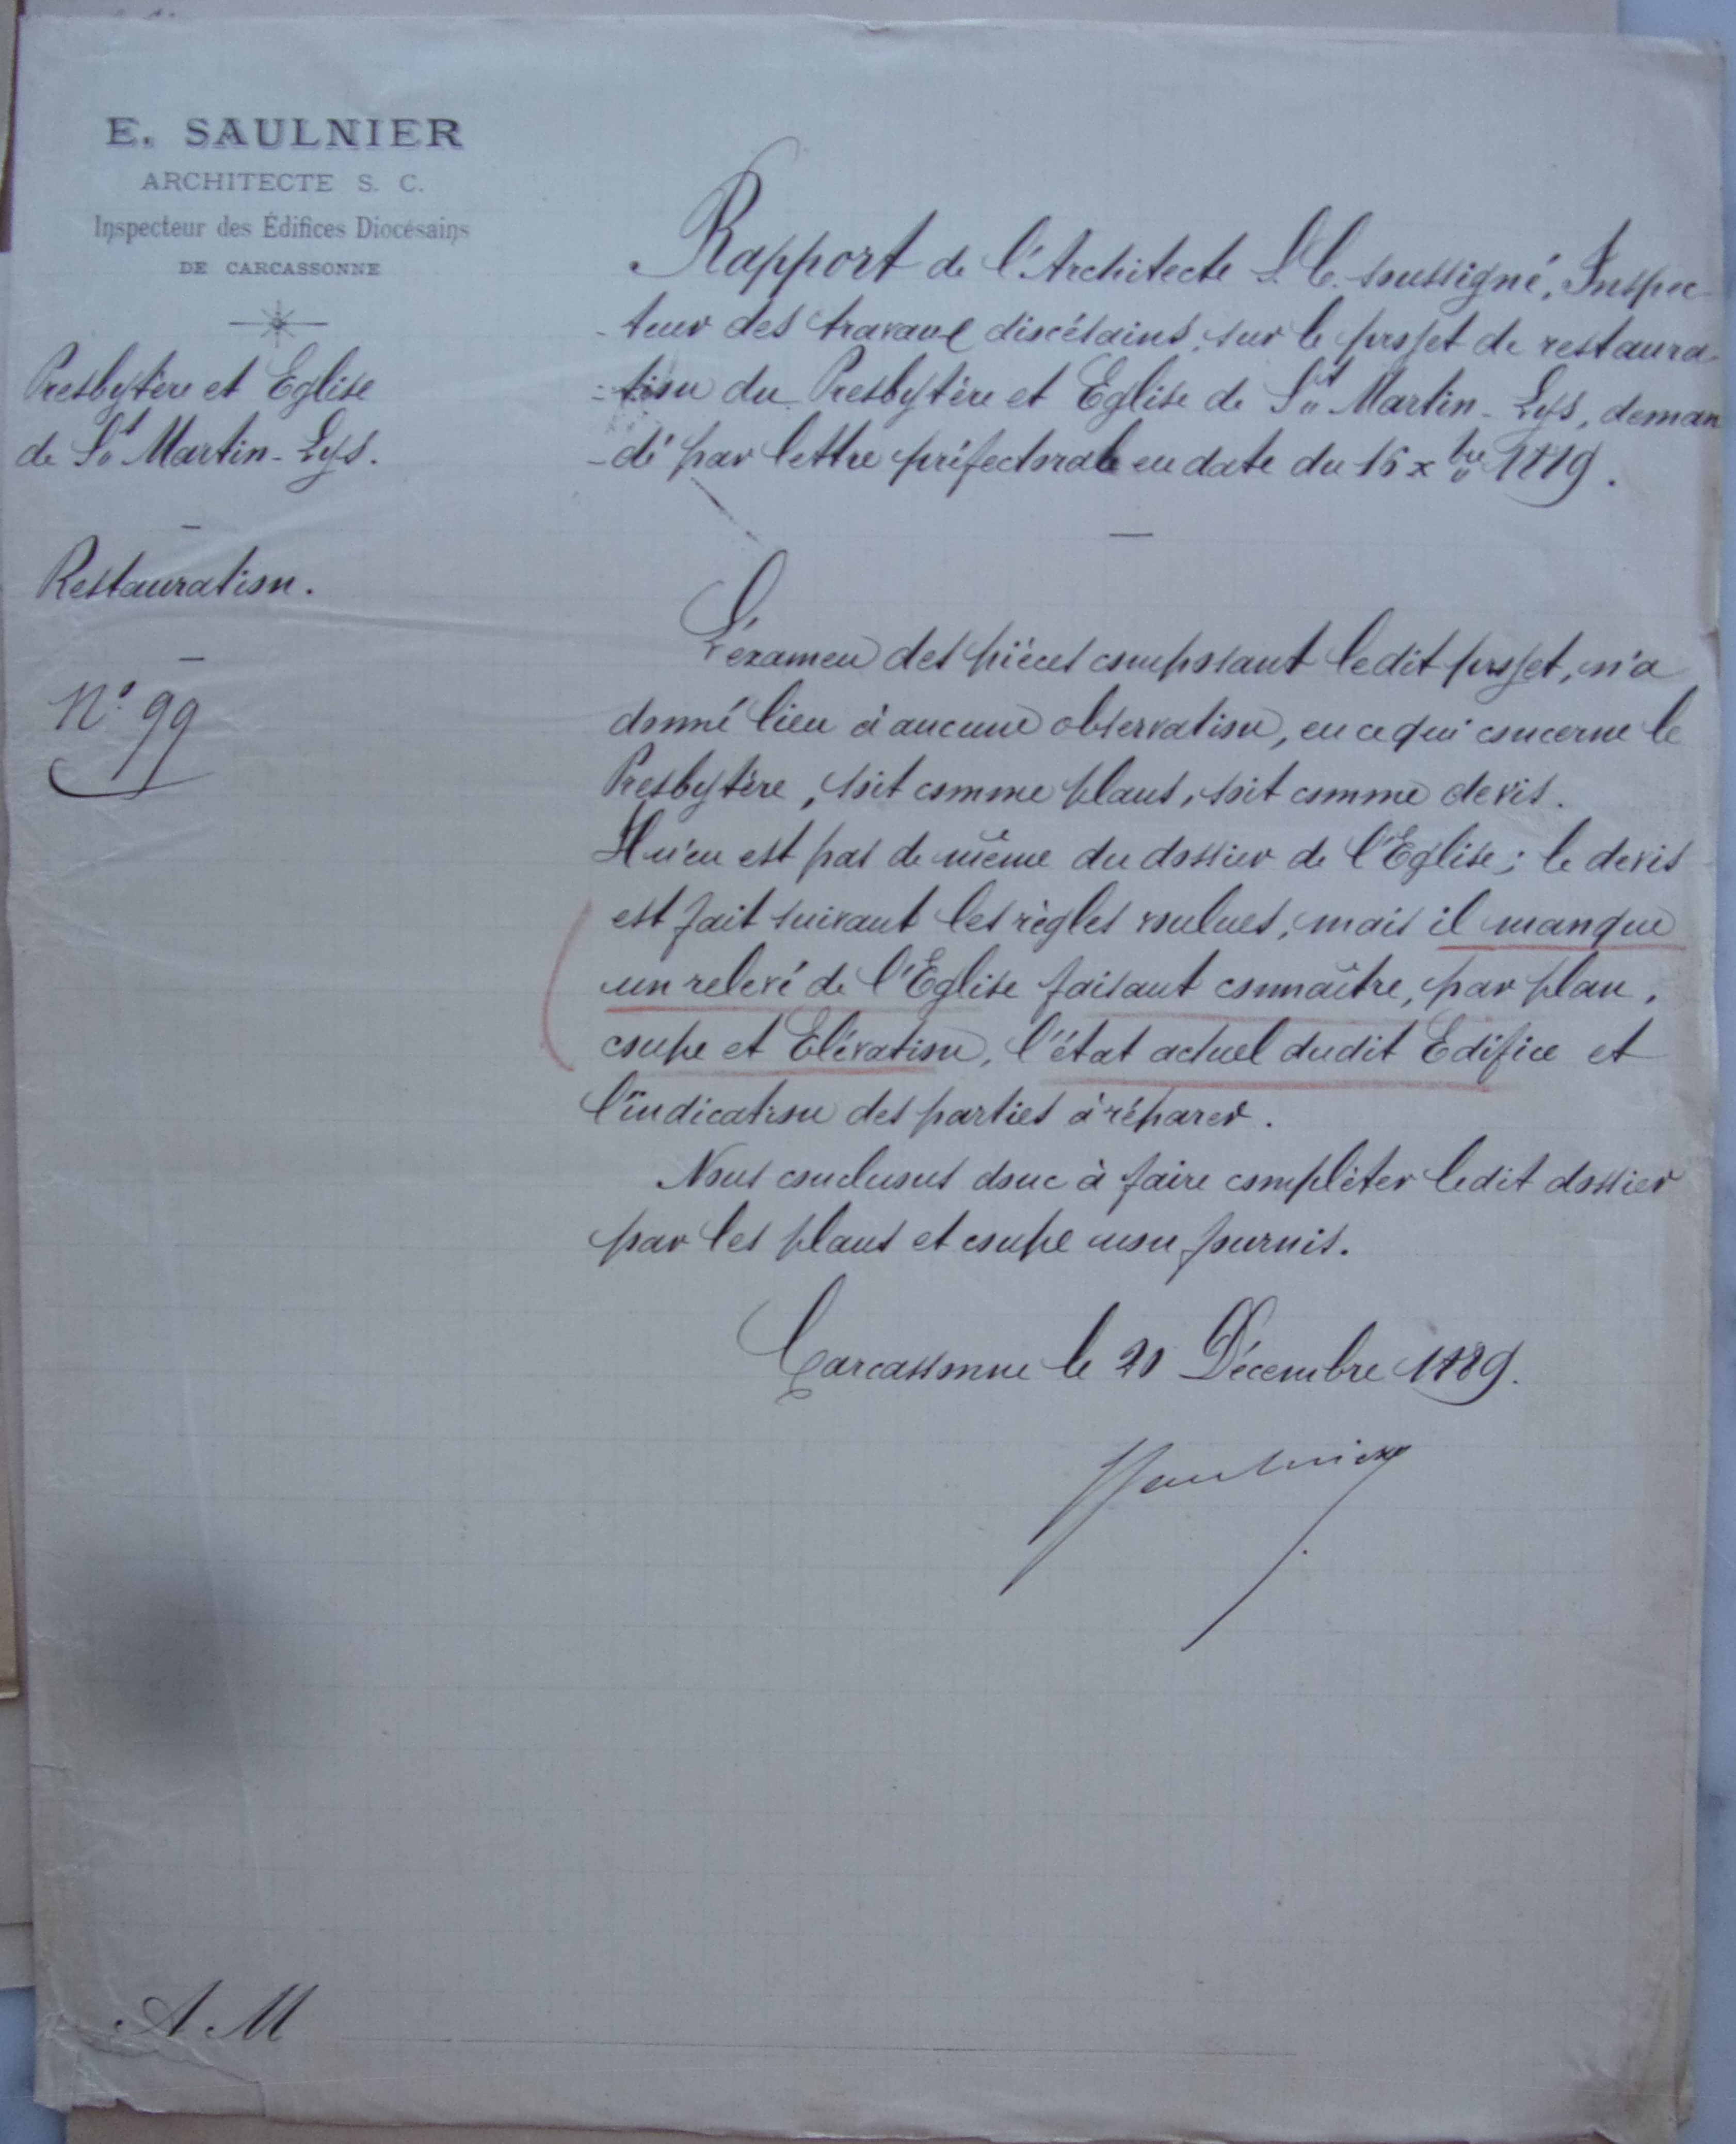 E. SAULNIER
ARCHITECTE S. C.
Inspecteur des Édifices Diocésains
DE CARCASSONNE
Presbytère et Eglise
de St Martin-Lys.
Restauration.
N° 99
Rapport de l'Architecte S.C. soussigné, Inspec-
-teur des travaux diocésains, sur le projet de restaura-
-tion du Presbytère et Eglise de St Martin-Lys, deman
-dé par lettre préfectorale en date du 16 xbre 1889.
L'éxamen des pièces composant ledit projet, n'a
donné lieu à aucune observation, en ce qui concerne le
Presbytère, soit comme plans, soit comme devis.
Il n'en est pas de même du dossier de l'Eglise; le devis
est fait suivant les règles voulues, mais il manque
un relevé de l'Eglise faisant connaître, par plan,
coupe et Elévation, l'état actuel dudit Edifice et
l'indication des parties à réparer.
Nous concluons donc à faire compléter ledit dossier
par les plans et coupe non fournis.
Carcassonne le 20 Décembre 1889.
Saulnier
A. M